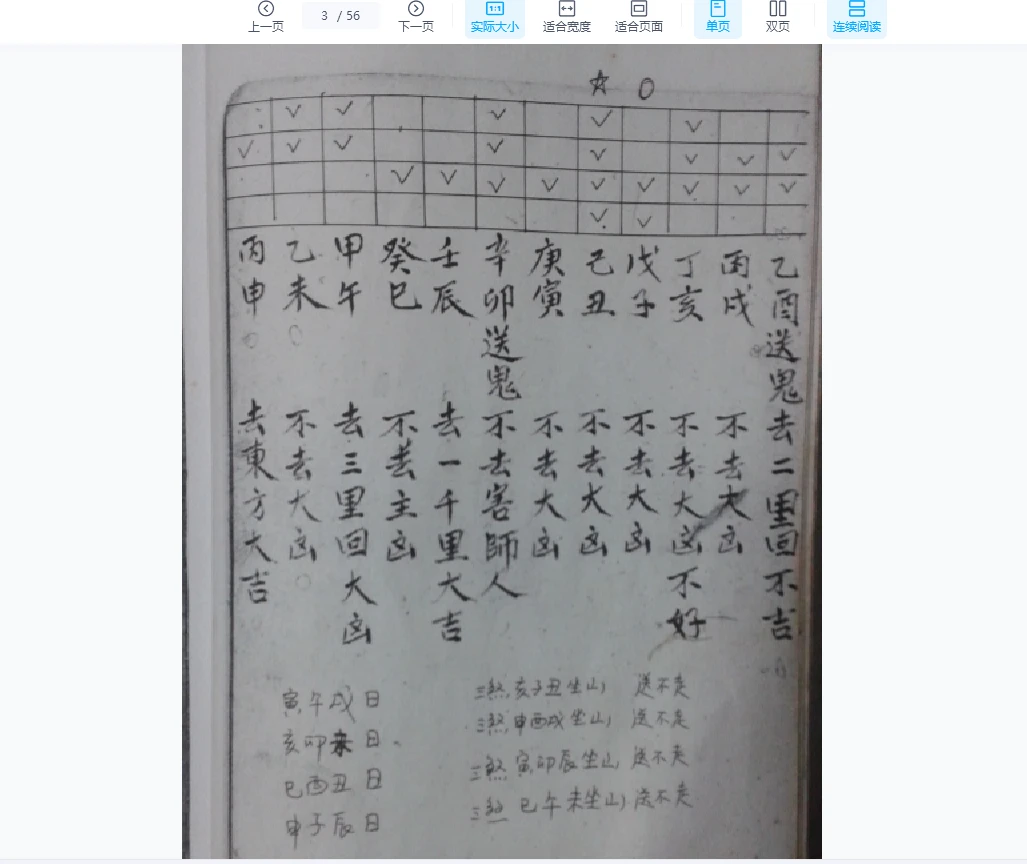 上一页
3 / 56
下一页
实际大小
适合宽度
适合页面
单页
双页
连续阅读
乙酉送鬼去二里回不吉
丙戌 不去大凶
丁亥 不去大凶不好
戊子 不去大凶
己丑 不去大凶
庚寅 不去大凶
辛卯送鬼不去害師人
壬辰 去一千里大吉
癸巳 不去主凶
甲午 去三里回大凶
乙未 不去大凶
丙申 去東方大吉
寅午戌日 三煞 亥子丑坐山 送不走
亥卯未日 三煞 申酉戌坐山 送不走
巳酉丑日 三煞 寅卯辰坐山 送不走
申子辰日 三煞 巳午未坐山 送不走